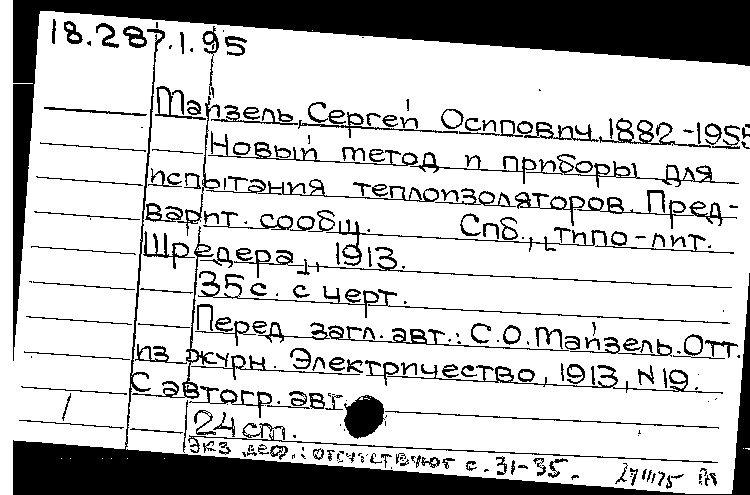 18.287.1.95
Майзель, Сергей Осипович, 1882-1955
Новый метод и приборы для
испытания теплоизоляторов. Пред-
варит. сообщ. Спб., "типо-лит.
Шредера", 1913.
35 с. с черт.
Перед загл. авт.: С.О. Майзель. Отт.
из журн. Электричество, 1913, N19.
С автогр. авт.
24 cm.
Экз деф.: отсутствуют с. 31-35.